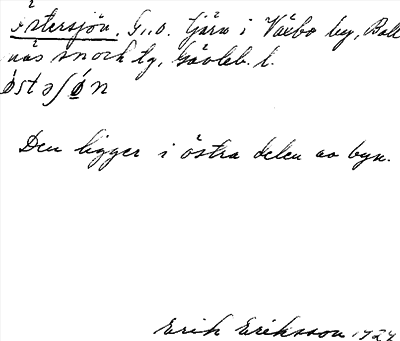 Östersjön. G..o. Tjärn i Växbo by, Boll
näs snoch lg, Gävleb. l.
östəʃøn
Den ligger i östra delen av byn.
Erik Eriksson 1924